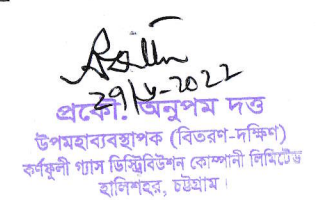 29/5/2022
প্রকৌ. অনুপম দত্ত
উপমহাব্যবস্থাপক (বিতরণ-দক্ষিণ)
কর্ণফুলী গ্যাস ডিস্ট্রিবিউশন কোম্পানী লিমিটেড
হালিশহর, চট্টগ্রাম।